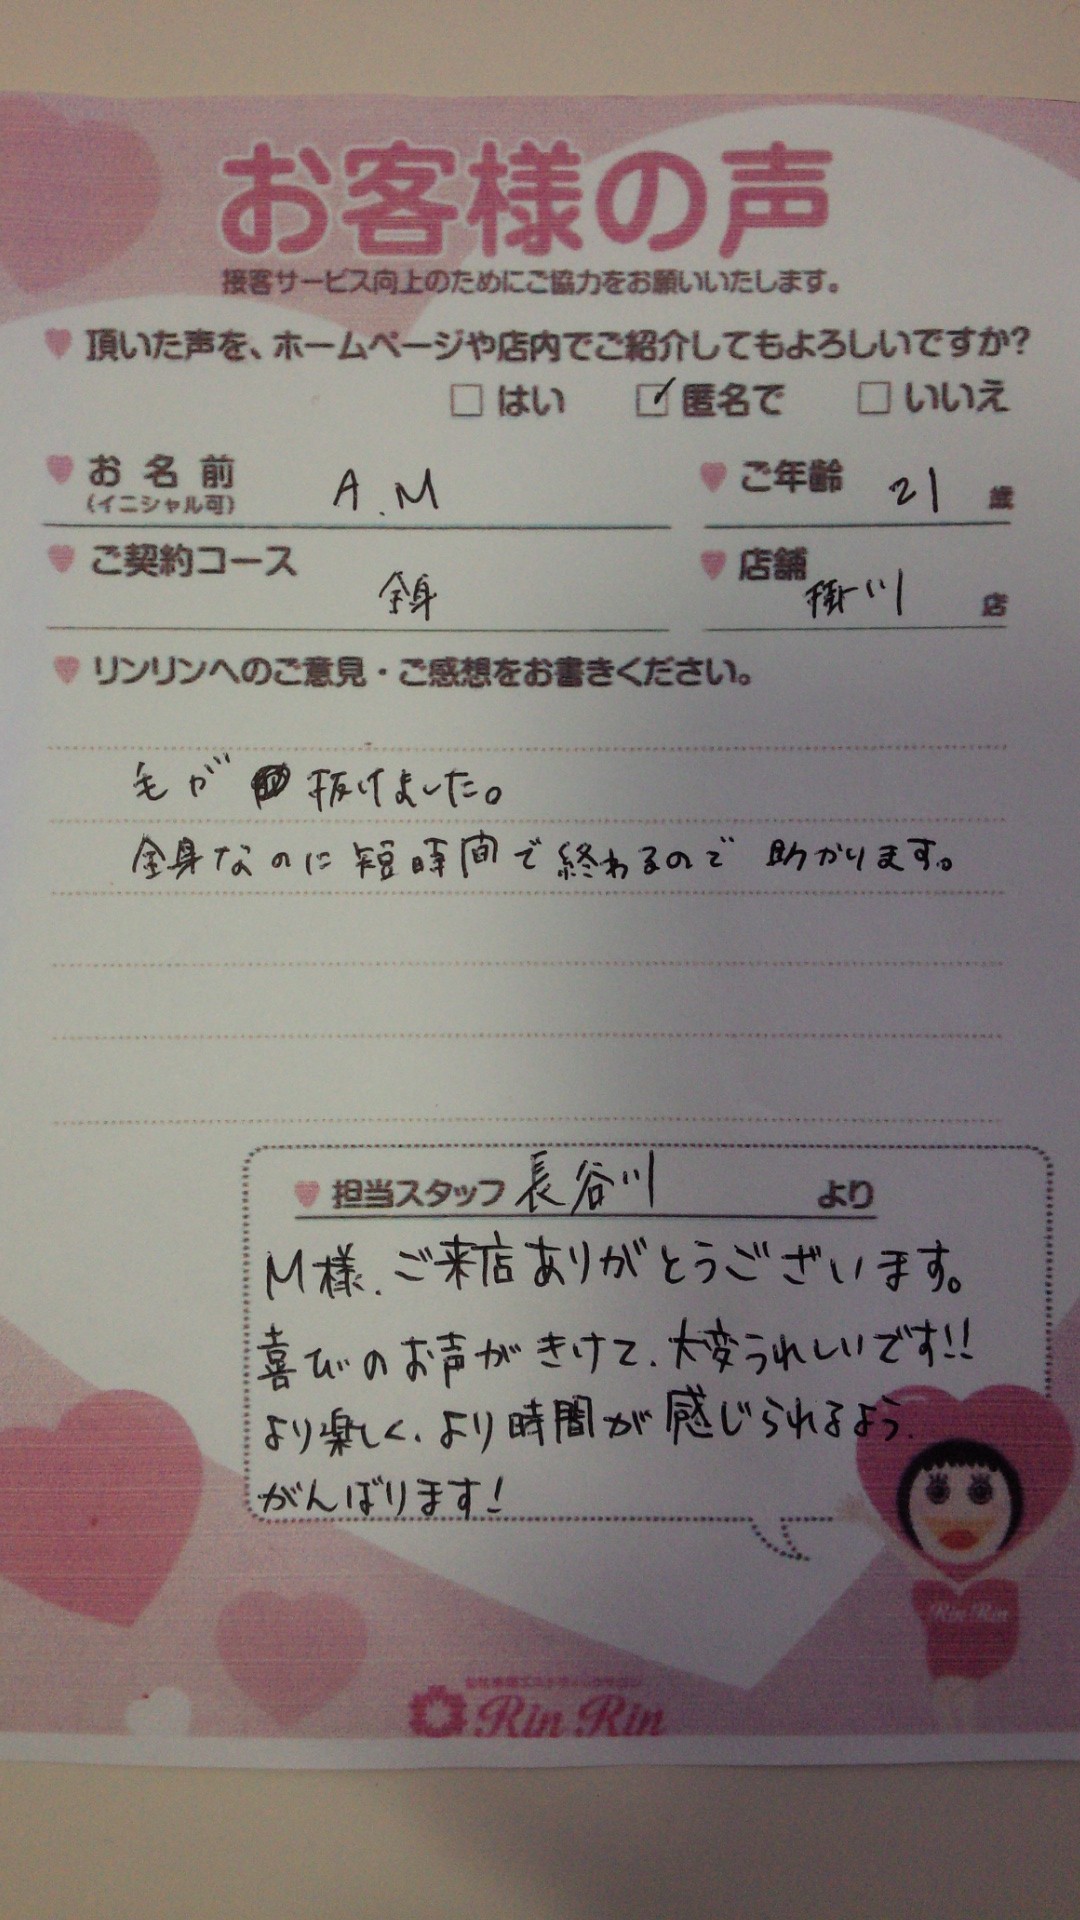 お客様の声
接客サービス向上のためにご協力をお願いいたします。
頂いた声を、ホームページや店内でご紹介してもよろしいですか?
はい 匿名で いいえ
お名前 A.M ご年齢 21 歳
(イニシャル可)
ご契約コース 全身 店舗 掛川 店
リンリンへのご意見・ご感想をお書きください。
毛が 抜けました。
全身なのに短時間で終わるので 助かります。
担当スタッフ 長谷川 より
M様、ご来店ありがとうございます。
喜びのお声がきけて、大変うれしいです!!
より楽しく、より時間が感じられるよう、
がんばります!
Rin Rin
Rin Rin